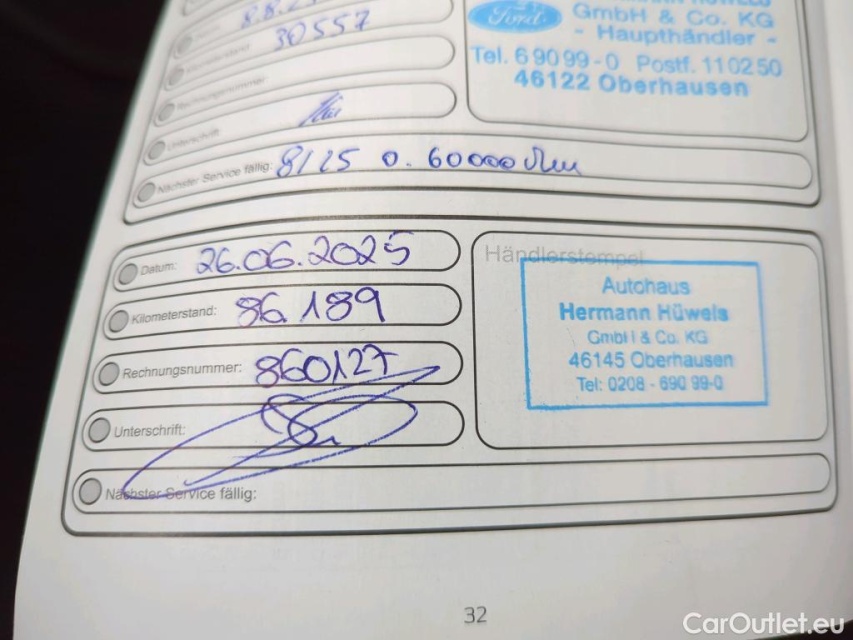 8.8.2
30557
Ford
GmbH & Co. KG
- Haupthändler -
Tel. 6 90 99-0 Postf. 11 02 50
46122 Oberhausen
Rechnungsnummer:
Unterschrift:
Nächster Service fällig: 8/25 o. 60000
Datum: 26.06.2025
Kilometerstand: 86 189
Rechnungsnummer: 860127
Unterschrift:
Nächster Service fällig:
Händlerstempel
Autohaus
Hermann Hüwels
GmbH & Co. KG
46145 Oberhausen
Tel: 0208 - 690 99-0
32
CarOutlet.eu